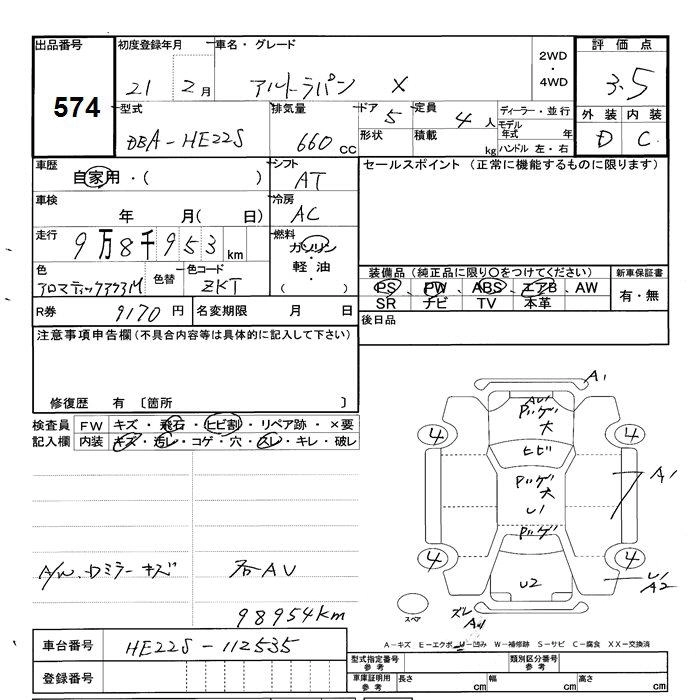 出品番号 初度登録年月 車名・グレード 2WD・4WD 評価点
574 21 2月 アルトラパン X 3.5
型式 排気量 ドア 5 定員 4人 ディーラー・並行 外装 内装
DBA-HE22S 660cc 形状 積載 kg モデル年式 年 D C
ハンドル 左・右
車歴 シフト セールスポイント (正常に機能するものに限ります)
自家用・( ) AT
車検 冷房
年 月( 日) AC
走行 9万8千953km 燃料
ガソリン
軽油
( )
色 色替 色コード 装備品 (純正品に限り○をつけてください) 新車保証書
ZKT PS PW ABS エアB AW 有・無
SR ナビ TV 本革
R券 9170円 名変期限 月 日 後日品
注意事項申告欄(不具合内容等は具体的に記入して下さい)
修復歴 有 〔箇所 〕
検査員 FW キズ・飛石・ヒビ割・リペア跡・×要
記入欄 内装 キズ・汚レ・コゲ・穴・スレ・キレ・破レ
A1
AU1
ドッグ
大
4 4
ヒビ
大
U1
A1
4 4
U2
U1
A2
スペア
ズレ
A/W.ドミラーキズ
右AU
98954km
A-キズ E-エクボ U-凹み W-補修跡 S-サビ C-腐食 XX-交換済
車台番号 HE22S-112535
登録番号
型式指定番号 参考 類別区分番号 参考
車庫証明用 参考 長さ cm 幅 cm 高さ cm